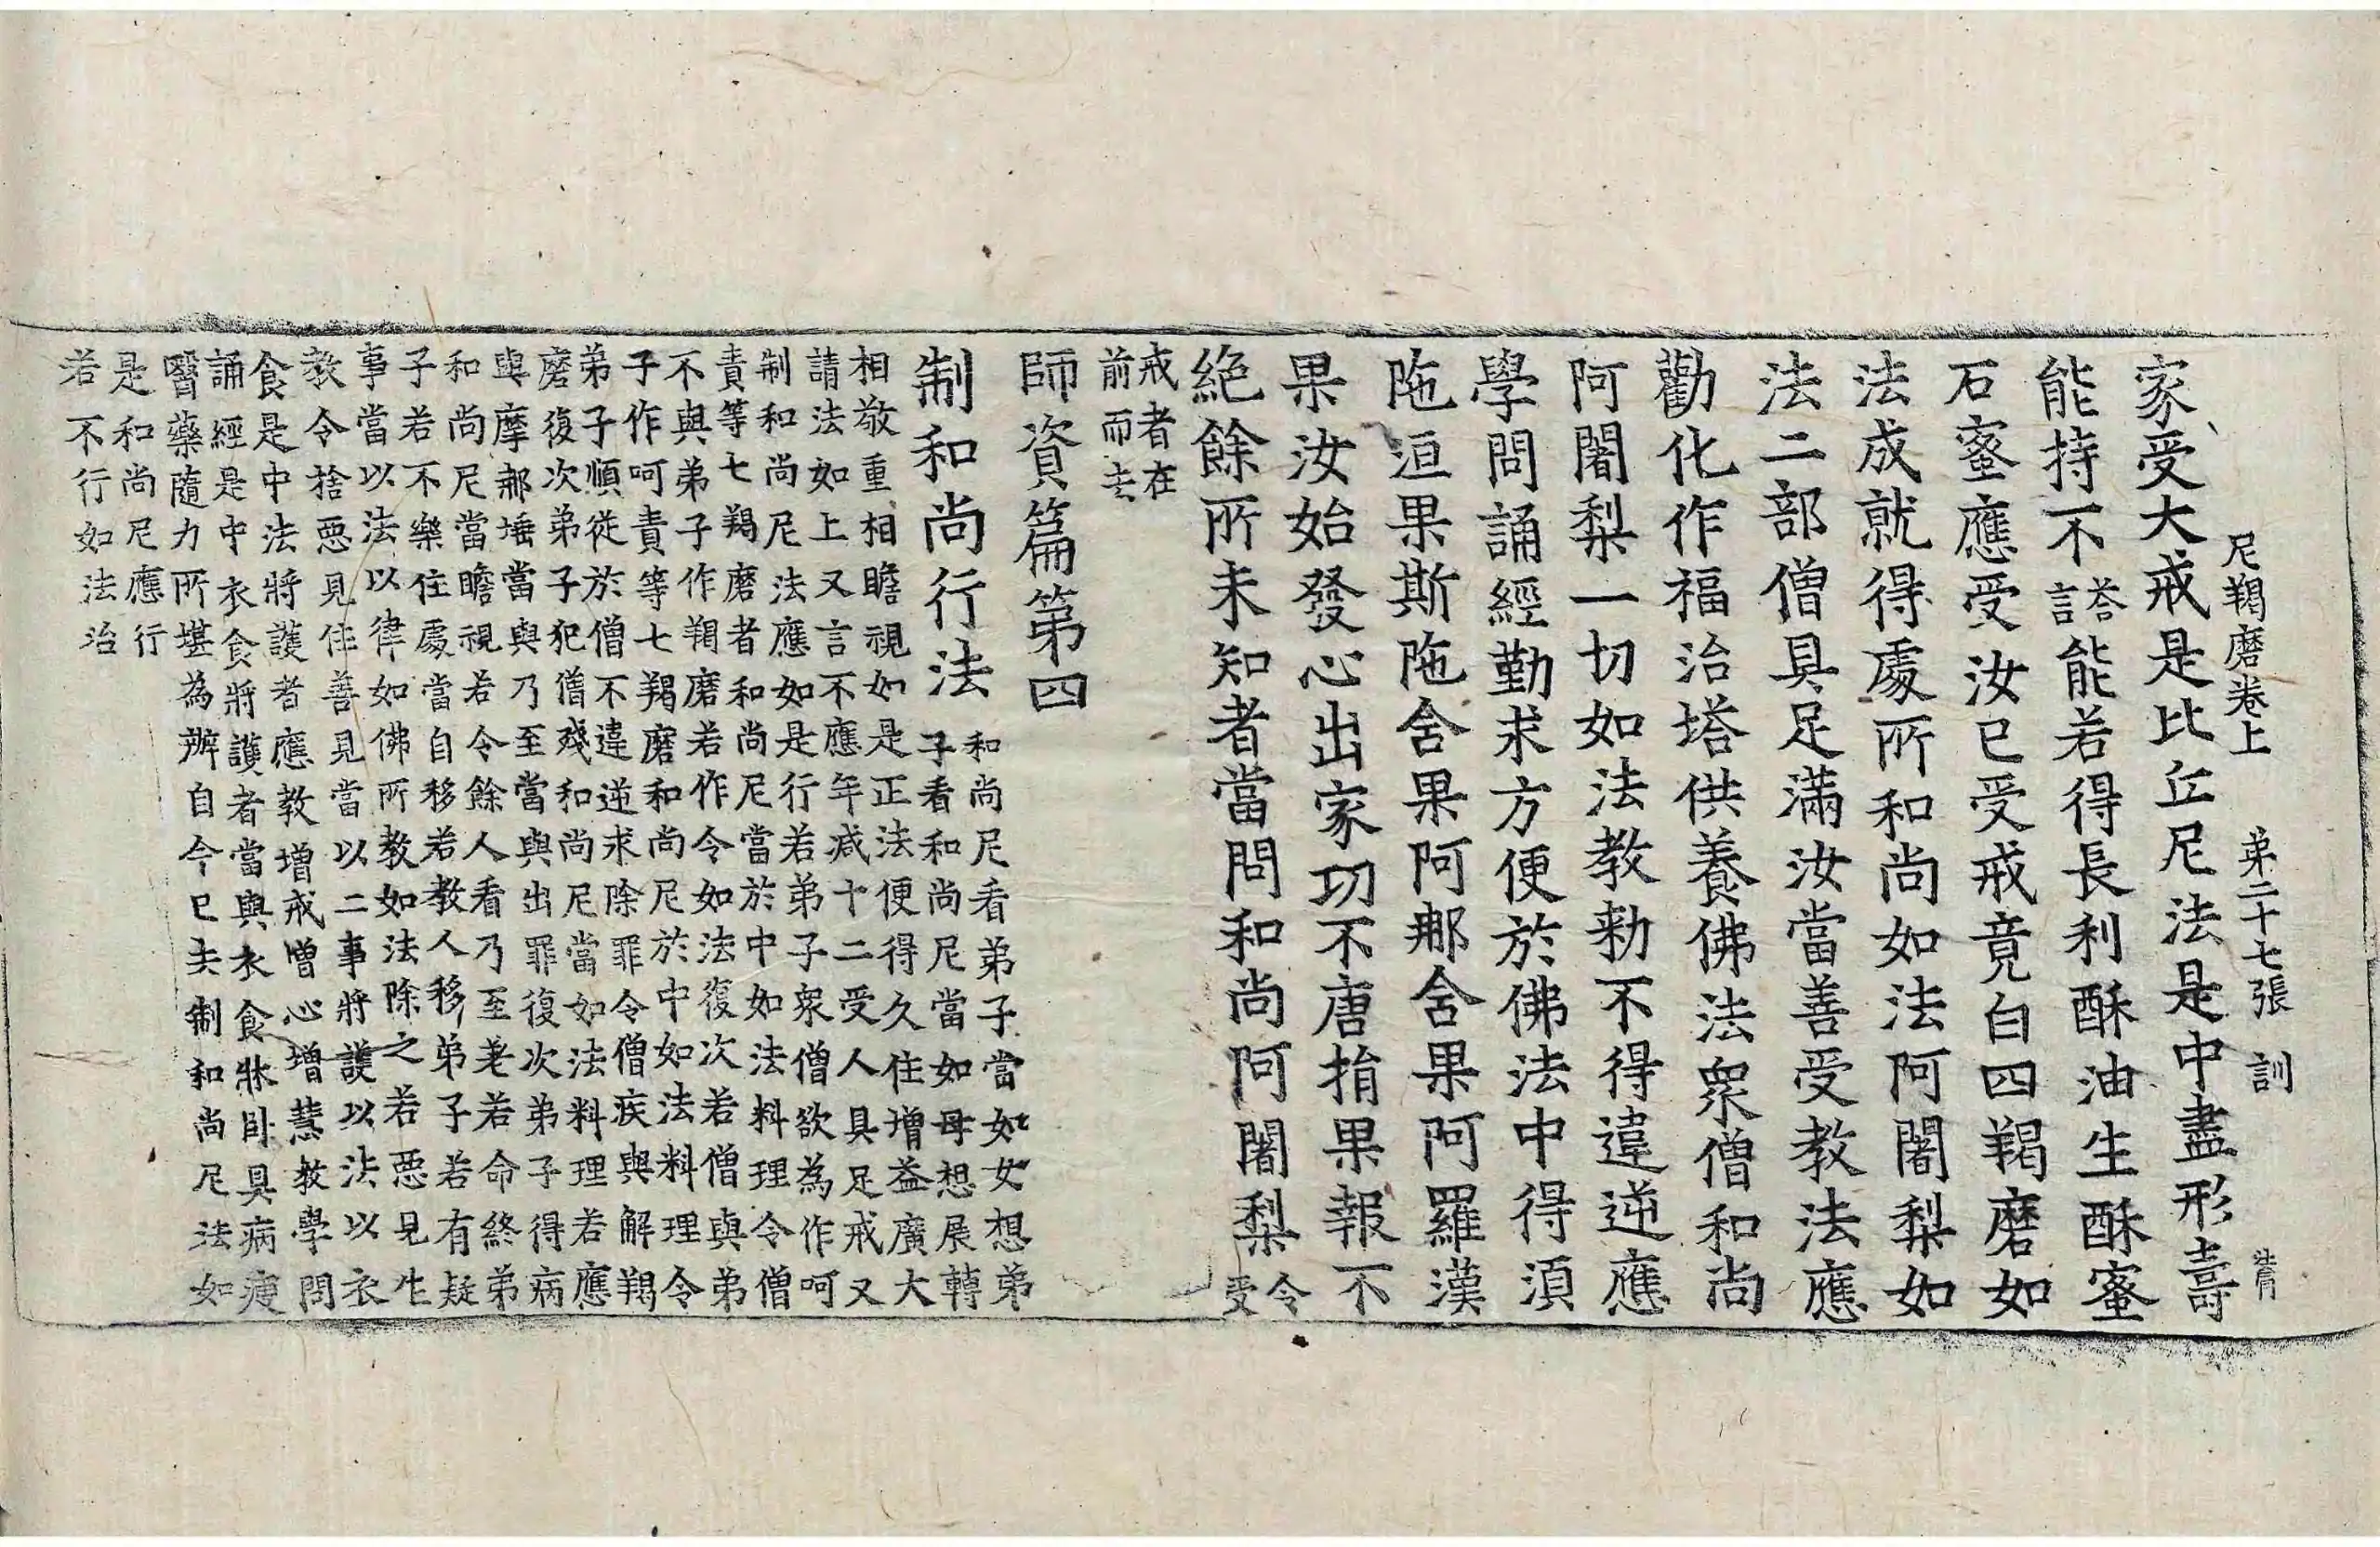 尼羯磨卷上　第二十七張　訓
家受大戒是比丘尼法是中盡形壽
能持不荅言能若得長利酥油生酥蜜
石蜜應受汝已受戒竟白四羯磨如
法成就得處所和尚如法阿闍梨如
法二部僧具足滿汝當善受教法應
勸化作福治塔供養佛法衆僧和尚
阿闍梨一切如法教勑不得違逆應
學問誦經勤求方便於佛法中得須
陁洹果斯陁含果阿那含果阿羅漢
果汝始發心出家功不唐捐果報不
絶餘所未知者當問和尚阿闍梨令受
戒者在
前而去
師資篇第四
制和尚行法
和尚尼看弟子當如女想弟
子看和尚尼當如母想展轉
相敬重相瞻視如是正法便得久住增益廣大
請法如上又言不應年減十二受人具足戒又
制和尚尼法應如是行若弟子衆僧欲為作呵
責等七羯磨者和尚尼當於中如法料理令僧
不與弟子作羯磨若作令如法復次若僧與弟
子作呵責等七羯磨和尚尼於中如法料理令
弟子順從於僧不違逆求除罪令僧疾與解羯
磨復次弟子犯僧殘和尚尼當如法料理若應
與摩那埵當與乃至當與出罪復次弟子得病
和尚尼當瞻視若令餘人看乃至差若命終弟
子若不樂住處當自移若教人移弟子若有疑
事當以法以律如佛所教如法除之若惡見生
教令捨惡見住善見當以二事將護以法以衣
食是中法將護者應教增戒增心增慧教學問
誦經是中衣食將護者當與衣食牀卧具病瘦
醫藥隨力所堪為辦自今已去制和尚尼法如
是和尚尼應行
若不行如法治